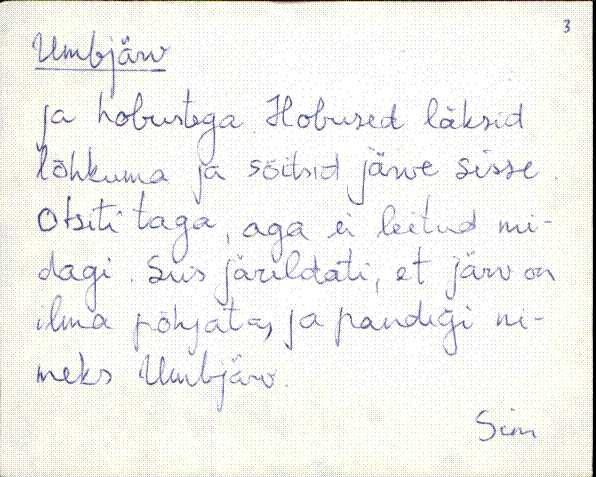 3
Umbjärv
ja hobustega. Hobused läksid
lõhkuma ja sõitsid järve sisse.
Otsiti taga, aga ei leitud mi-
dagi. Siis järeldati, et järv on
ilma põhjata, ja pandigi ni-
meks Umbjärv.